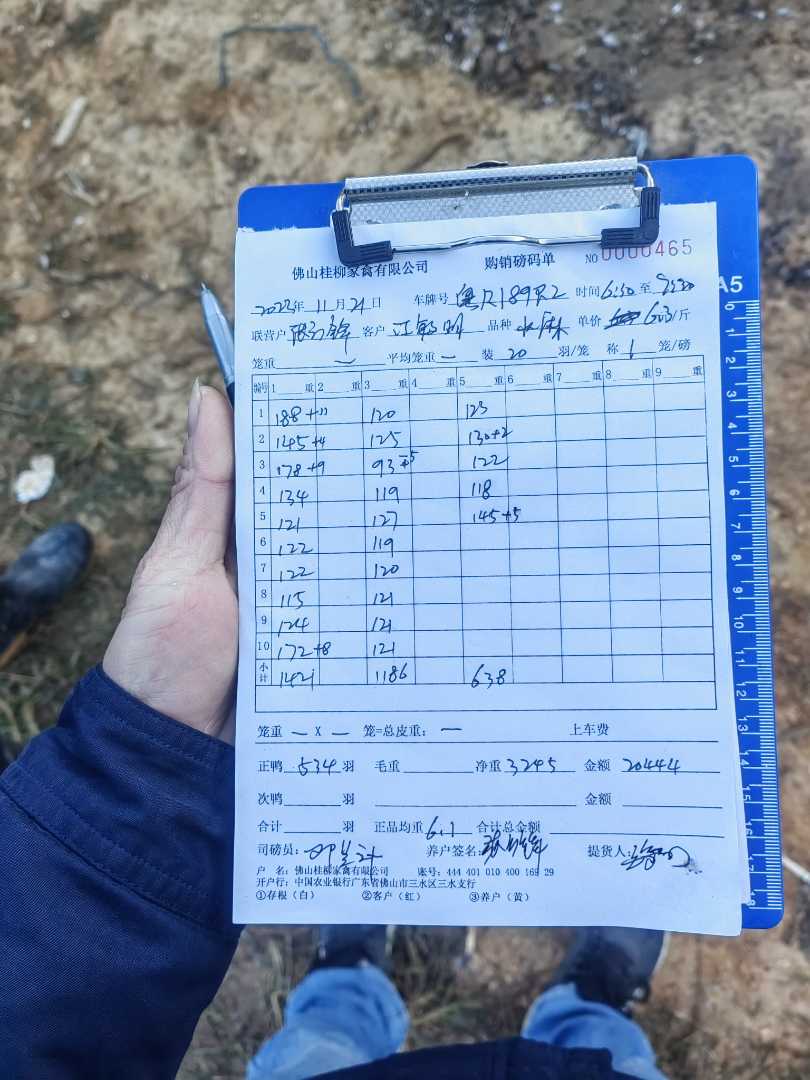 佛山桂柳家禽有限公司 购销磅码单 NO 0000465
2023年 11月 21日 车牌号 时间 6:30 至
联营户 客户 品种 单价 6.3/斤
笼重 — 平均笼重 — 装 20 羽/笼 称 1 笼/磅
编号 1 重 2 重 3 重 4 重 5 重 6 重 7 重 8 重 9 重
1 188+11 120 123
2 145+4 125 130+2
3 178+9 93-5 122
4 134 119 118
5 121 127 145+5
6 122 119
7 122 120
8 115 121
9 124 121
10 172+8 121
小计 1421 1186 638
笼重 — X — 笼=总皮重: — 上车费
正鸭 534 羽 毛重 净重 3245 金额 20444
次鸭 羽 金额
合计 羽 正品均重 6.1 合计总金额
司磅员: 养户签名: 提货人:
户 名: 佛山桂柳家禽有限公司 账号: 444 401 010 400 169 29
开户行: 中国农业银行广东省佛山市三水区三水支行
①存根(白) ②客户(红) ③养户(黄)
A5
0 1 2 3 4 5 6 7 8 9 10 11 12 13 14 15 16 17 18